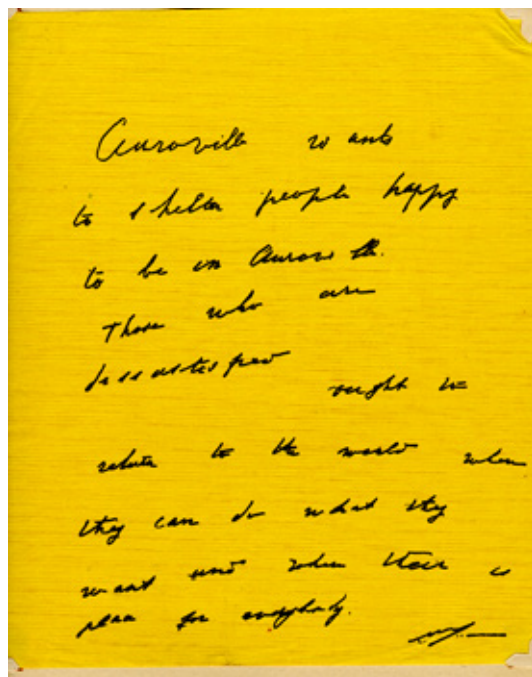 Auroville wants
to shelter people happy
to be in Auroville.
Those who are
dissatisfied
ought to
return to the world where
they can do what they
want and where there is
place for everybody.